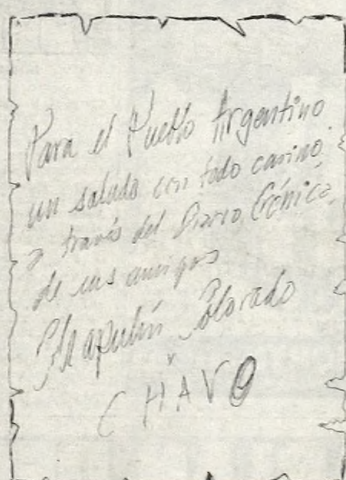 Para el Pueblo Argentino
un saludo con todo cariño
a través del Diario Crónica
de sus amigos
Chapulín Colorado
y
CHAVO